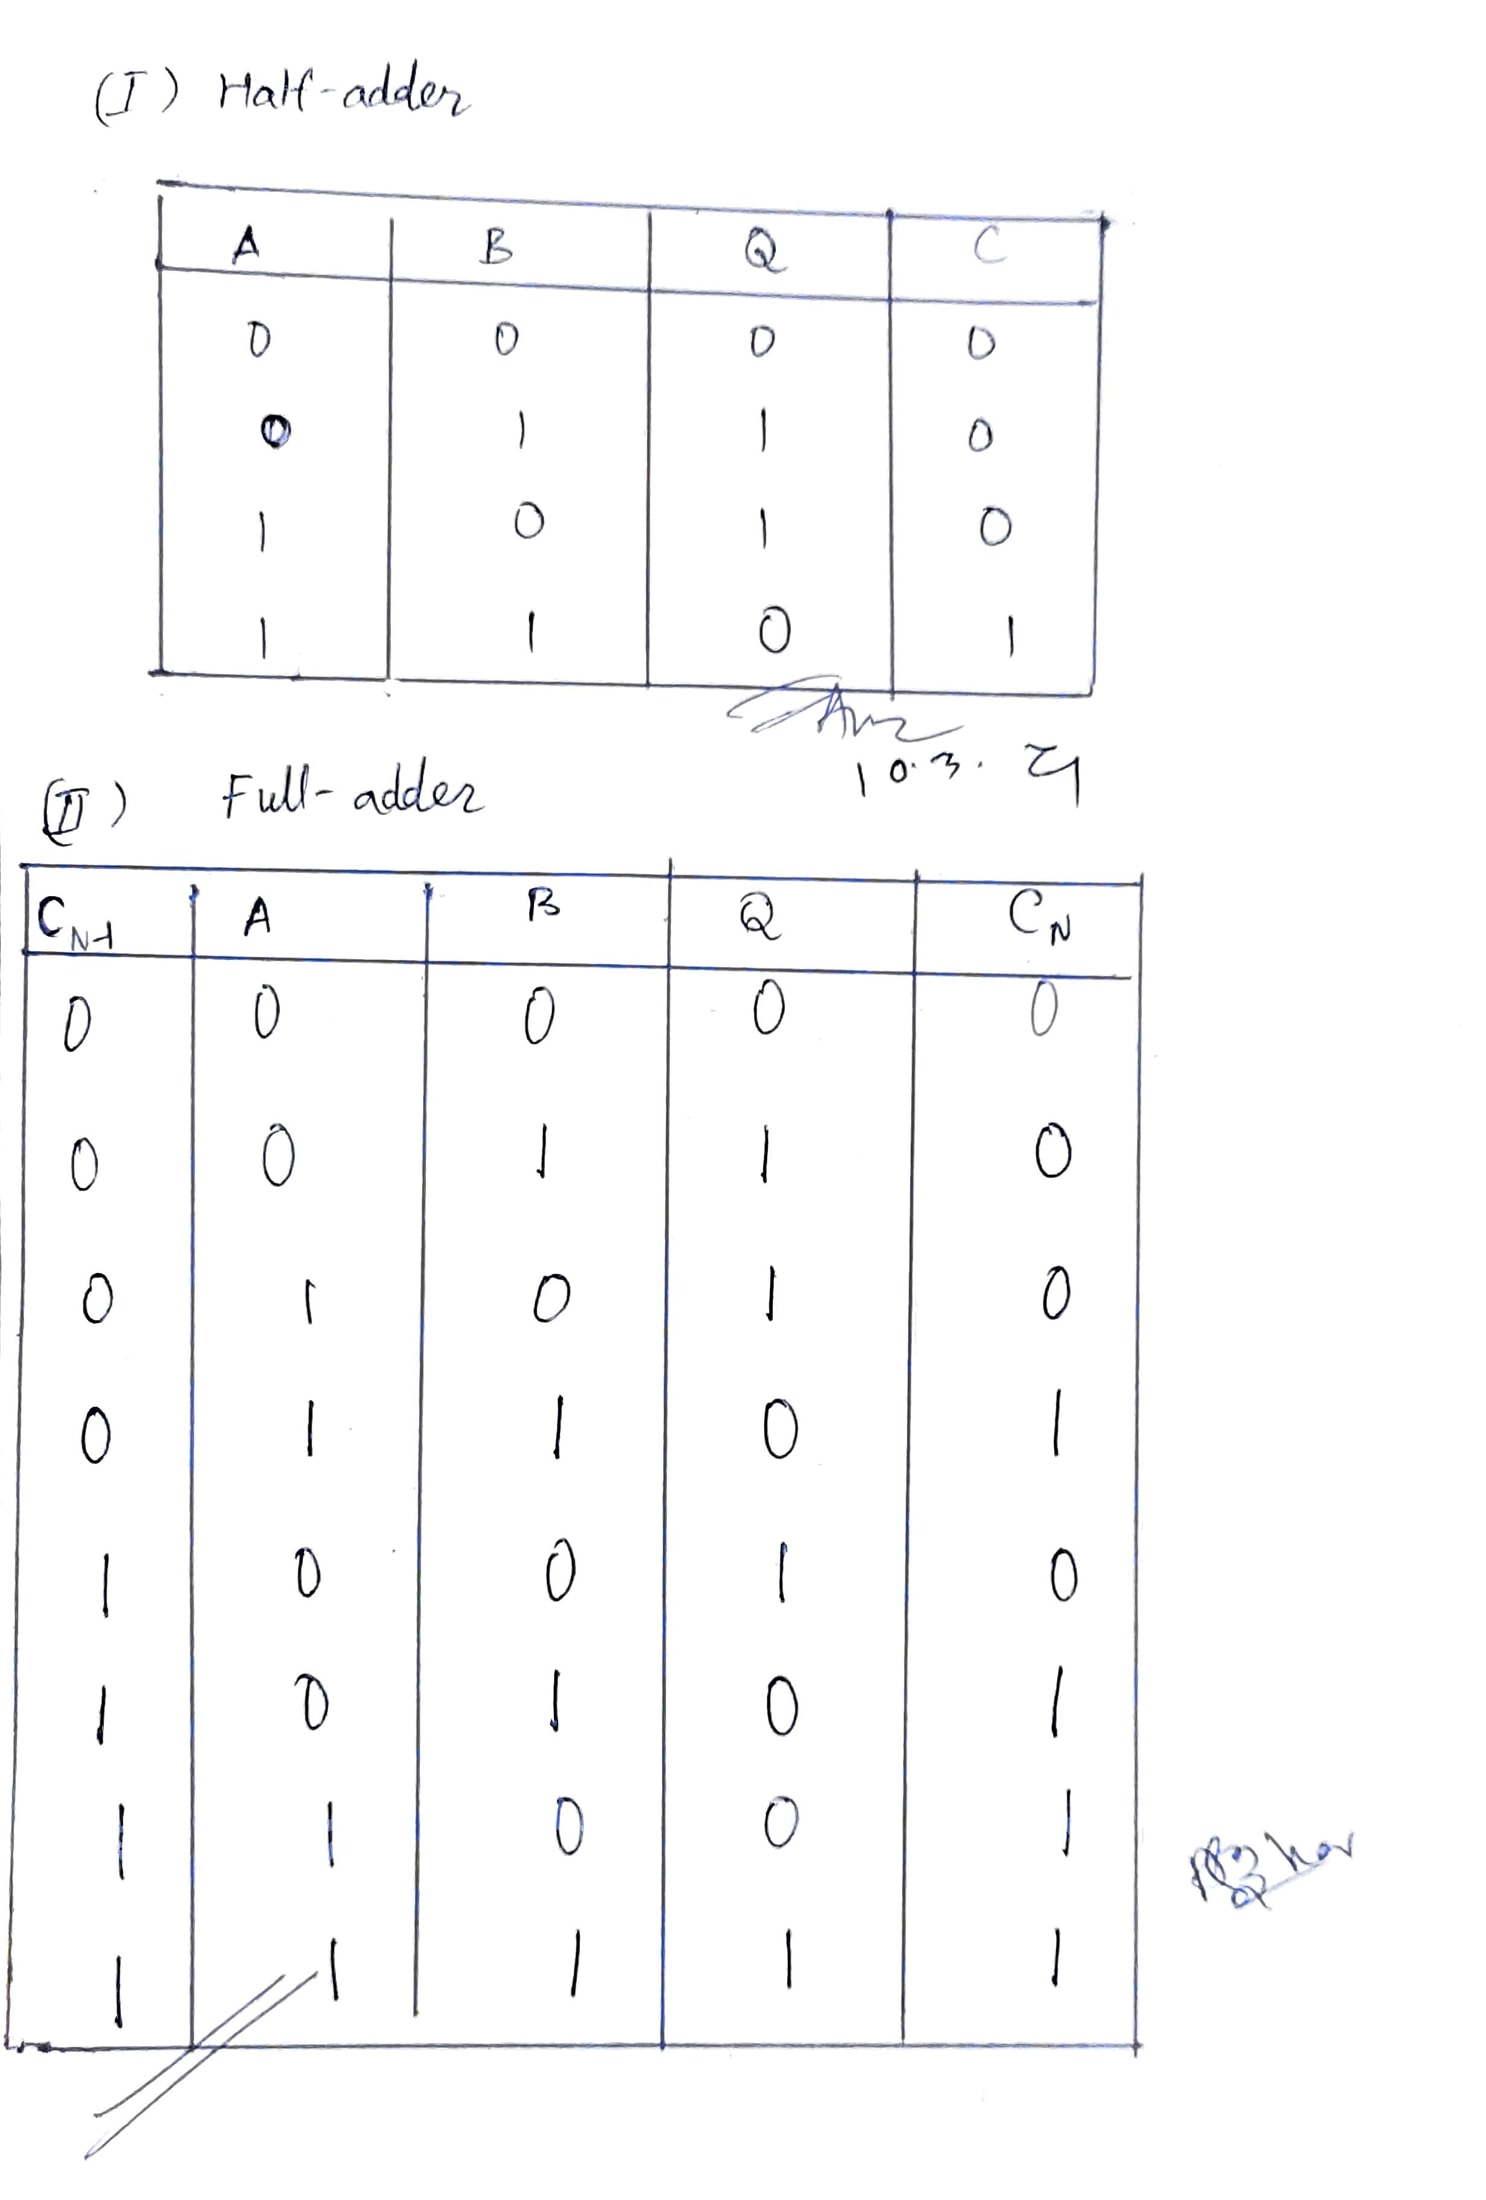 (I) Half-adder
A B Q C
0 0 0 0
0 1 1 0
1 0 1 0
1 1 0 1
10.3.
(II) Full-adder
C_N-1 A B Q C_N
0 0 0 0 0
0 0 1 1 0
0 1 0 1 0
0 1 1 0 1
1 0 0 1 0
1 0 1 0 1
1 1 0 0 1
1 1 1 1 1